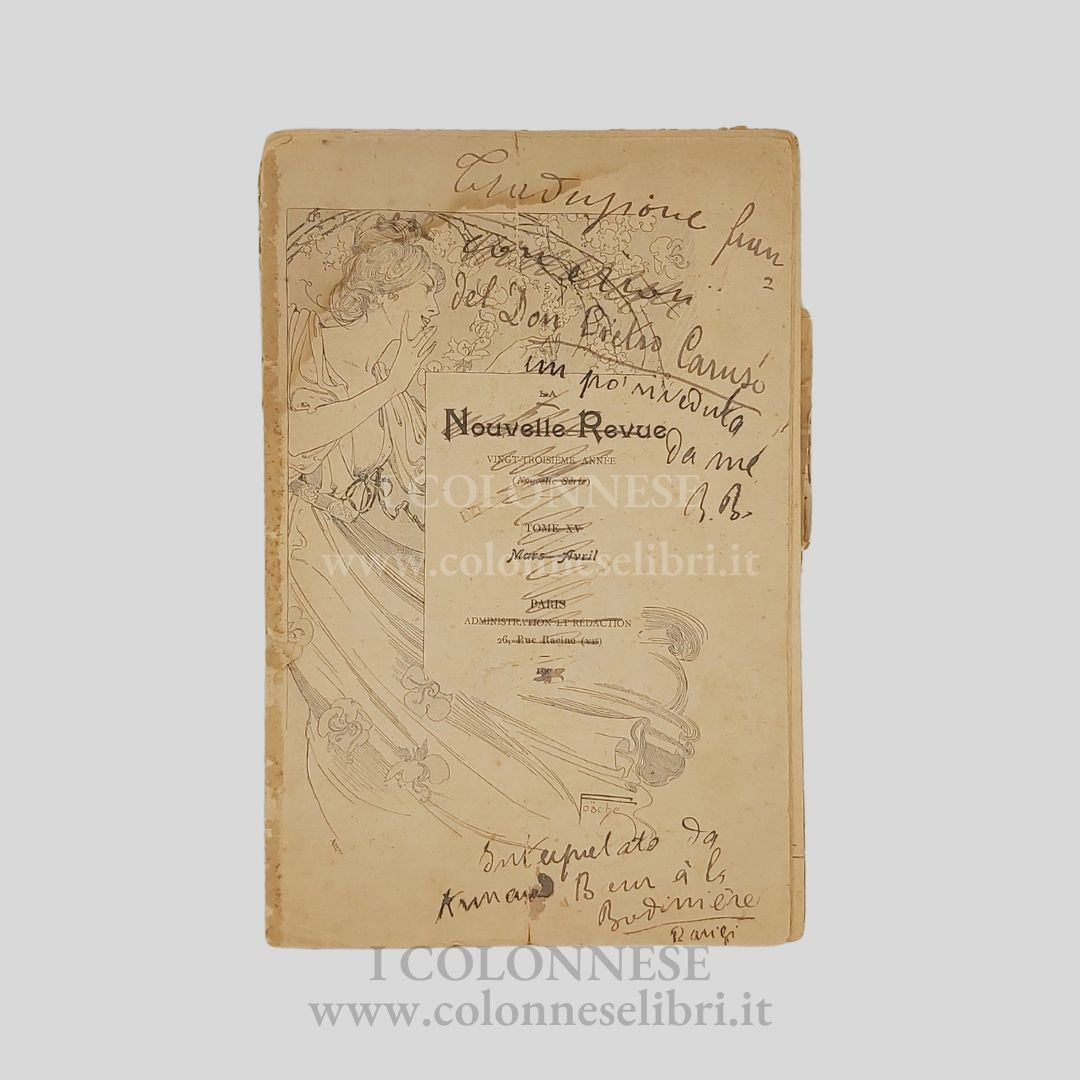 Traduzione fran
del Don Pietro Caruso
un po' riveduta
da me
B. B.
LA
Nouvelle Revue
VINGT-TROISIÈME ANNÉE
(Nouvelle Série)
I COLONNESE
TOME XV
Mars-Avril
www.colonneselibri.it
PARIS
ADMINISTRATION ET RÉDACTION
26, Rue Racine (VIE)
Interpretato da
Armand Bour à la
Bodinière
Parigi
I COLONNESE
www.colonneselibri.it